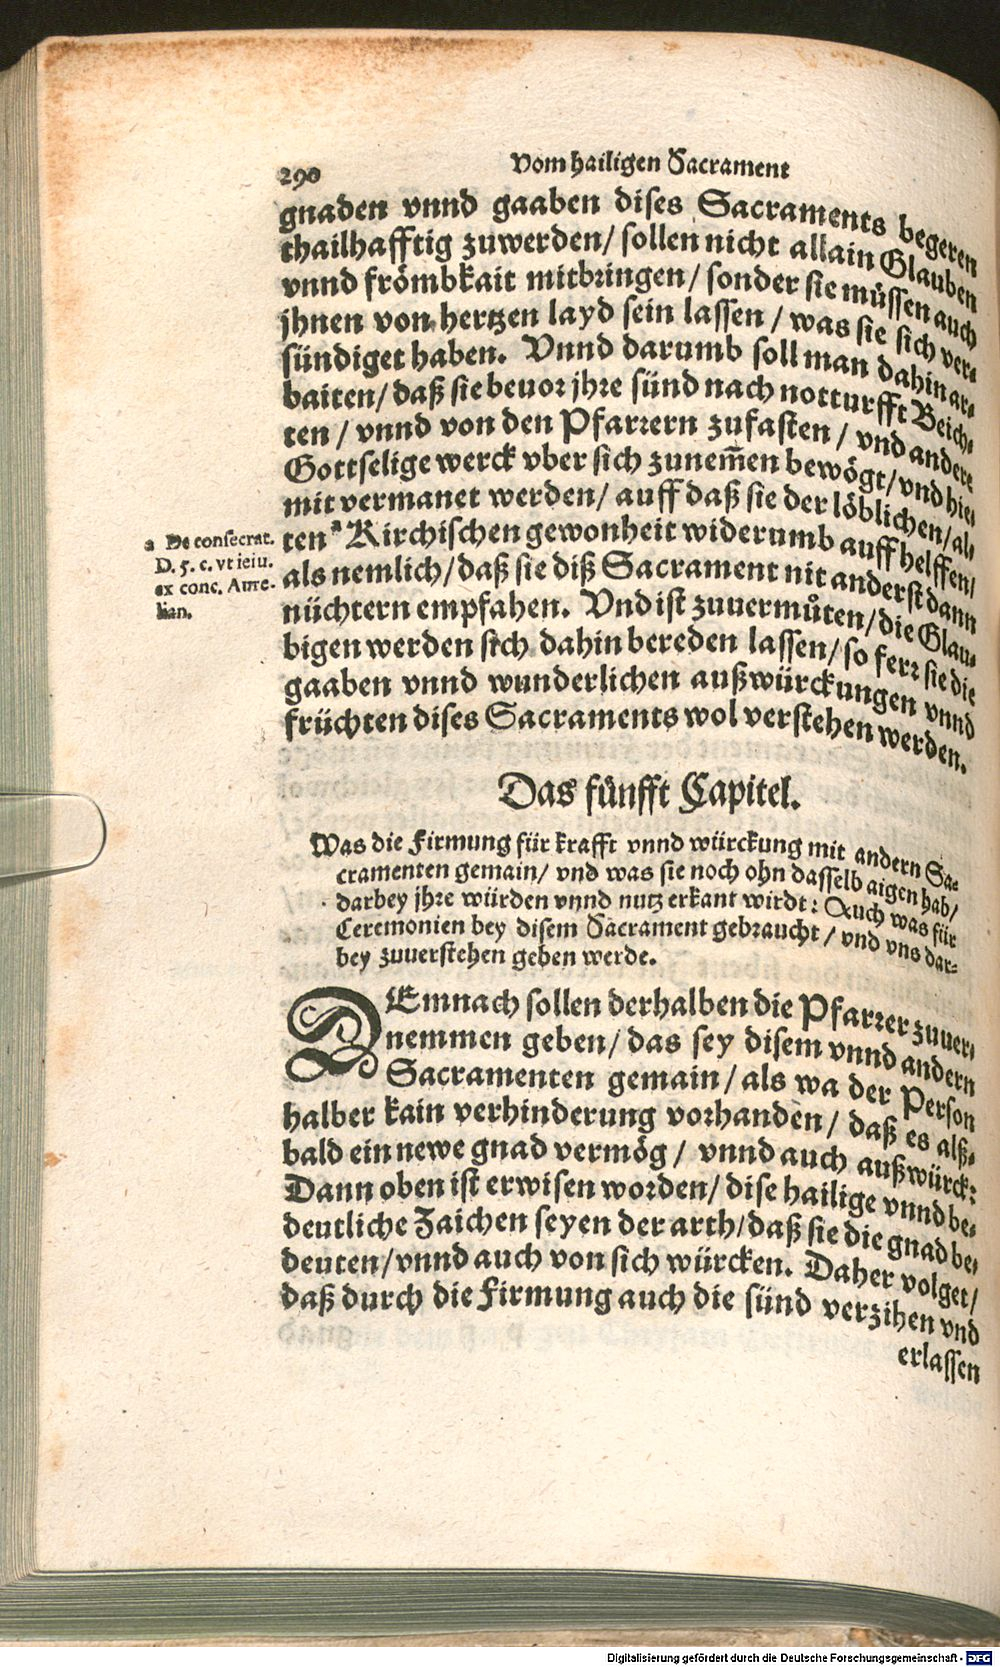 290
Vom hailigen Sacrament
gnaden vnnd gaaben dises Sacraments begeren
thailhafftig zuwerden/ sollen nicht allain Glauben
vnnd frömbkait mitbringen/ sonder sie müssen auch
jhnen von hertzen layd sein lassen / was sie sich ver-
sündiget haben. Vnnd darumb soll man dahin ar-
baiten/ daß sie beuor jhre sünd nach notturfft Beich-
ten / vnnd von den Pfarrern zufasten / vnd andere
Gottselige werck vber sich zunem̃en bewögt/ vnd hie-
mit vermanet werden/ auff daß sie der löblichen/ al-
ten a Kirchischen gewonheit widerumb auff helffen/
als nemlich/ daß sie diß Sacrament nit anderst dann
nüchtern empfahen. Vnd ist zuuermůten/ die Glau-
bigen werden sich dahin bereden lassen/ so ferr sie die
gaaben vnnd wunderlichen außwürckungen vnnd
früchten dises Sacraments wol verstehen werden.
a De consecrat.
D. 5. c. vt ieiu.
ex conc. Aure-
lian.
Das fünfft Capitel.
Was die Firmung für krafft vnnd würckung mit andern Sa-
cramenten gemain/ vnd was sie noch ohn dasselb aigen hab/
darbey jhre würden vnnd nutz erkant wirdt: Auch was für
Ceremonien bey disem Sacrament gebraucht / vnd vns dar-
bey zuuerstehen geben werde.
DEmnach sollen derhalben die Pfarrer zuuer-
nemmen geben/ das sey disem vnnd andern
Sacramenten gemain/ als wa der Person
halber kain verhinderung vorhanden/ daß es alß-
bald ein newe gnad vermög/ vnnd auch außwürck:
Dann oben ist erwisen worden/ dise hailige vnnd be-
deutliche Zaichen seyen der arth/ daß sie die gnad be-
deuten/ vnnd auch von sich würcken. Daher volget/
daß durch die Firmung auch die sünd verzihen vnd
erlassen
Digitalisierung gefördert durch die Deutsche Forschungsgemeinschaft - DFG